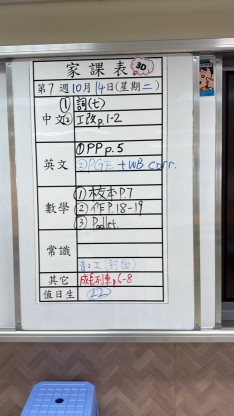 家課表 3D
第7週10月14日(星期二)
中文
① 詞(七)
② 工改p.1-2
英文
① PP p.5
② PGE + WB corr.
數學
① 校本P.7
② 作P.18-19
③ Padlet
常識
其它
成長列車p.6-8
值日生
22